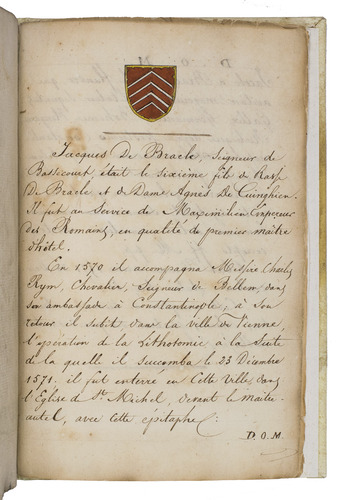 Jacques De Bracle, Seigneur de
Bassecourt, était le sixième fils de
De Bracle et de Dame Agnès De Cuinghien.
Il fut au Service de Maximilien Empereur
des Romains, en qualité de premier maitre
d'hôtel.
En 1570 il accompagna Messire Charles
Rym, Chevalier, Seigneur de Bellem, dans
son ambassade à Constantinople, à Son
retour il Subit dans la ville de Vienne,
l'opération de la Lithotomie à la Suite
de la quelle il Succomba le 23 Décembre
1571. il fut enterré en Cette Ville, dans
l'Eglise de St. Michel, devant le Maitre-
autel, avec Cette épitaphe:
D. O. M.